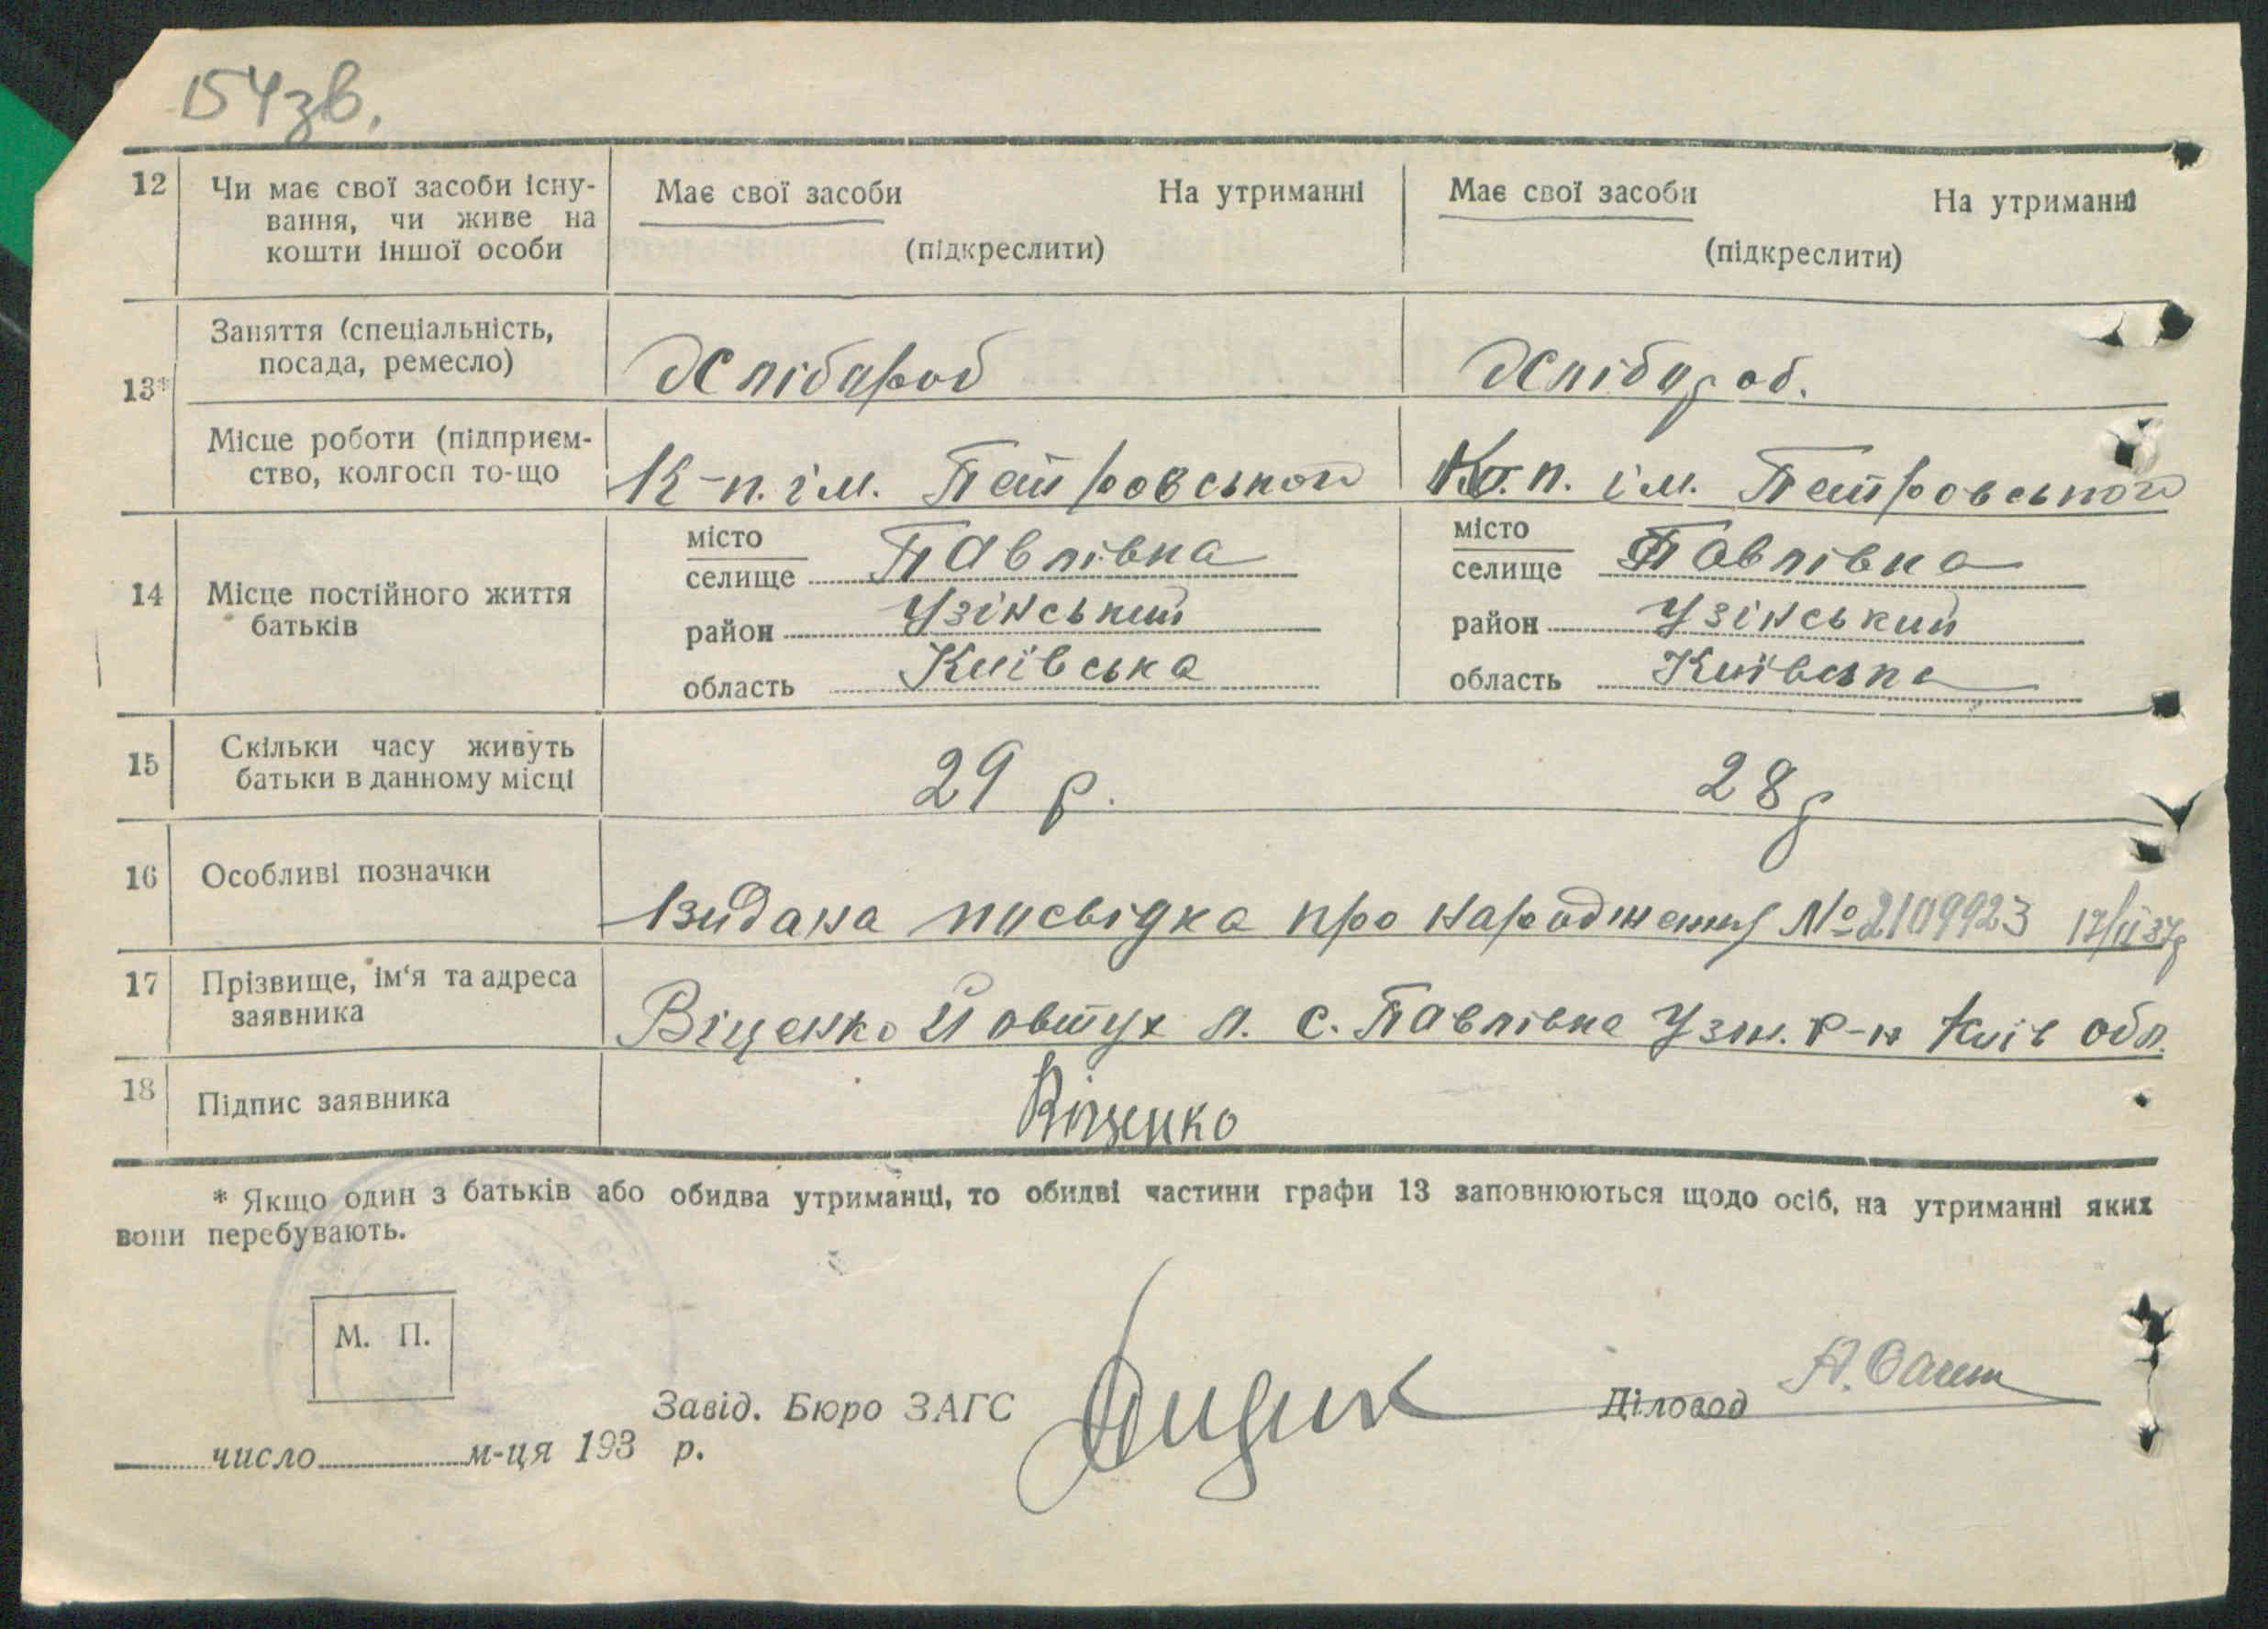 154зв.
12 Чи має свої засоби існу- Має свої засоби На утриманні Має свої засоби На утриманні
вання, чи живе на
кошти іншої особи (підкреслити) (підкреслити)
Заняття (спеціальність,
посада, ремесло) Хлібароб Хлібароб.
13*
Місце роботи (підприєм-
ство, колгосп то-що К-п. ім. Петровського К.п. ім. Петровського
місто місто
селище Павлівка селище Павлівка
14 Місце постійного життя
батьків район Узінський район Узінський
область Київська область Київська
15 Скільки часу живуть
батьки в данному місці 29 р. 28 р
16 Особливі позначки
Видана посвідка про народження № 2109923 17/II 37р
17 Прізвище, ім'я та адреса
заявника Віценко Йовтух Л. с. Павлівка Узін. р-н Київ обл.
18 Підпис заявника Віценко
* Якщо один з батьків або обидва утриманці, то обидві частини графи 13 заповнюються щодо осіб, на утриманні яких
вони перебувають.
М. П.
Завід. Бюро ЗАГС Діловод
число м-ця 193 р.